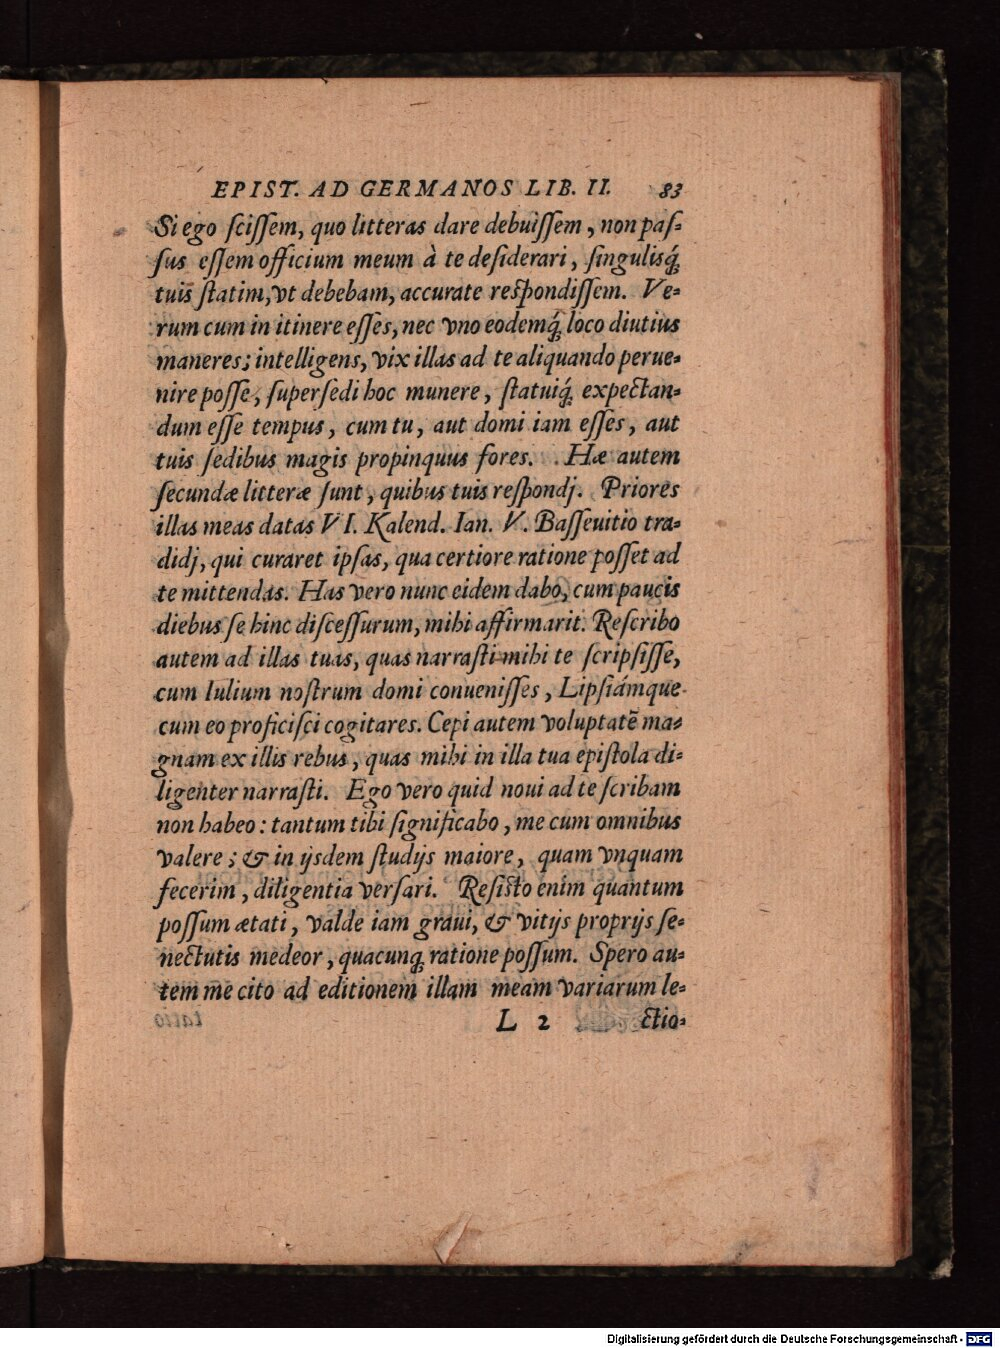 EPIST. AD GERMANOS LIB. II. 83
Si ego ſciſſem, quo litteras dare debuiſſem, non paſ-
ſus eſſem officium meum à te deſiderari, ſingulisq́;
tuis ſtatim, vt debebam, accurate reſpondiſſem. Ve-
rum cum in itinere eſſes, nec vno eodemq́; loco diutius
maneres; intelligens, vix illas ad te aliquando perue-
nire poſſe, ſuperſedi hoc munere, ſtatuiq́; expectan-
dum eſſe tempus, cum tu, aut domi iam eſſes, aut
tuis ſedibus magis propinquus fores. Hæ autem
ſecundæ litteræ ſunt, quibus tuis reſpondj. Priores
illas meas datas VI. Kalend. Ian. V. Baſſeuitio tra-
didj, qui curaret ipſas, qua certiore ratione poſſet ad
te mittendas. Has vero nunc eidem dabo, cum paucis
diebus ſe hinc diſceſſurum, mihi affirmarit. Reſcribo
autem ad illas tuas, quas narraſti mihi te ſcripſiſſe,
cum Iulium noſtrum domi conueniſſes, Lipſiámque
cum eo proficiſci cogitares. Cepi autem voluptatē ma-
gnam ex illis rebus, quas mihi in illa tua epiſtola di-
ligenter narraſti. Ego vero quid noui ad te ſcribam
non habeo: tantum tibi ſignificabo, me cum omnibus
valere; & in ijsdem ſtudijs maiore, quam vnquam
fecerim, diligentia verſari. Reſiſto enim quantum
poſſum ætati, valde iam graui, & vitijs proprijs ſe-
nectutis medeor, quacunq; ratione poſſum. Spero au-
tem me cito ad editionem illam meam variarum le-
L 2 ctio-
Digitalisierung gefördert durch die Deutsche Forschungsgemeinschaft - DFG